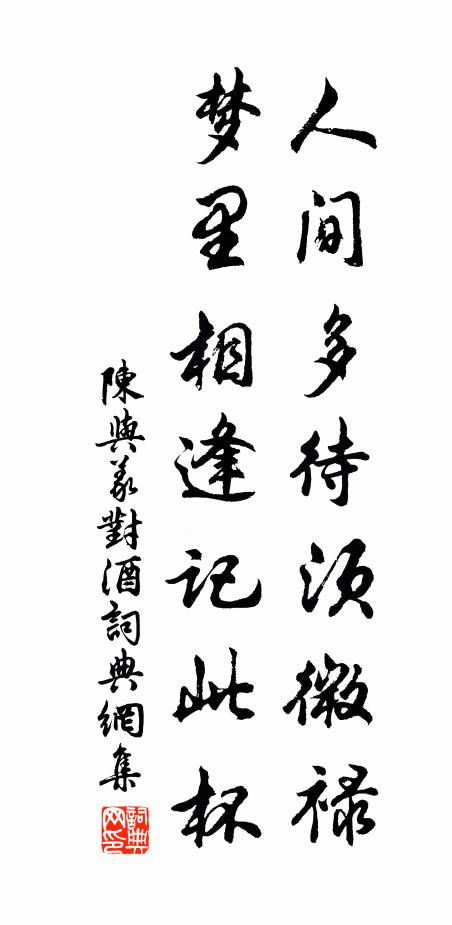 人间多待须微禄
梦里相逢记此杯
陳與義對酒詞典網集
詞典网印